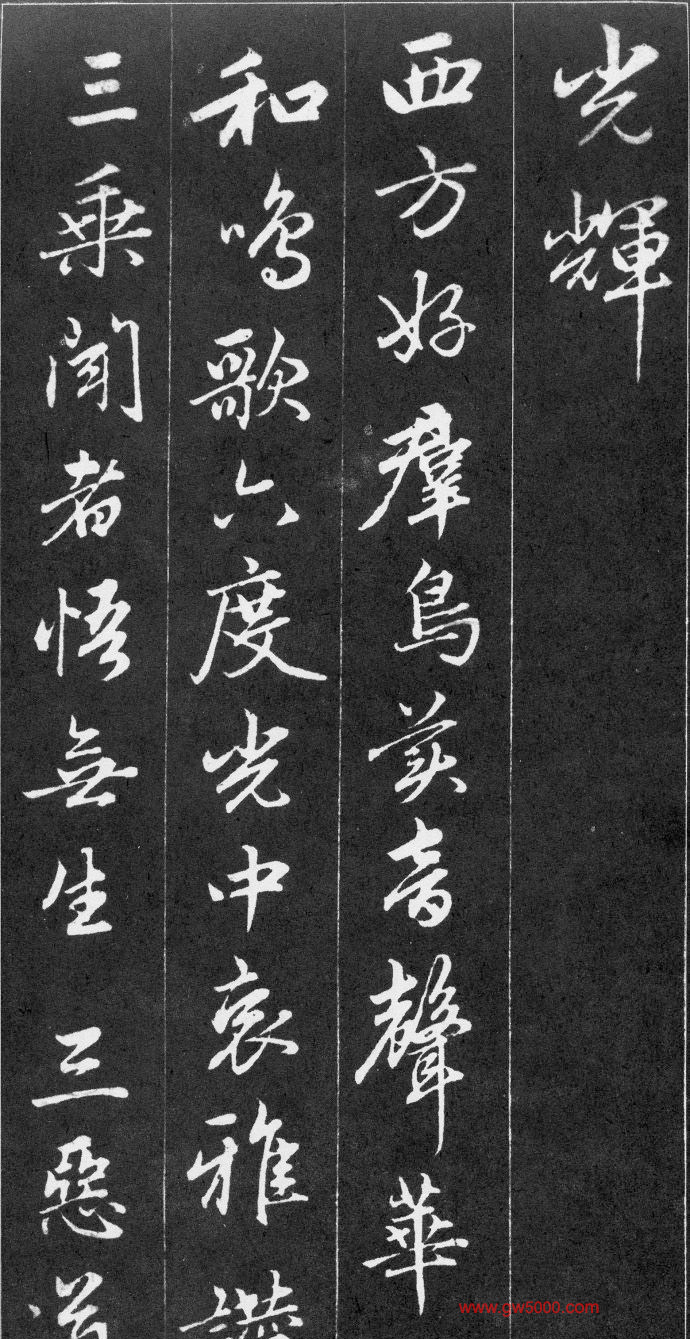 光輝
西方好群鳥美音聲華
和鳴歌六度光中哀雅讚
三乘聞者悟無生 三惡道
www.gw5000.com